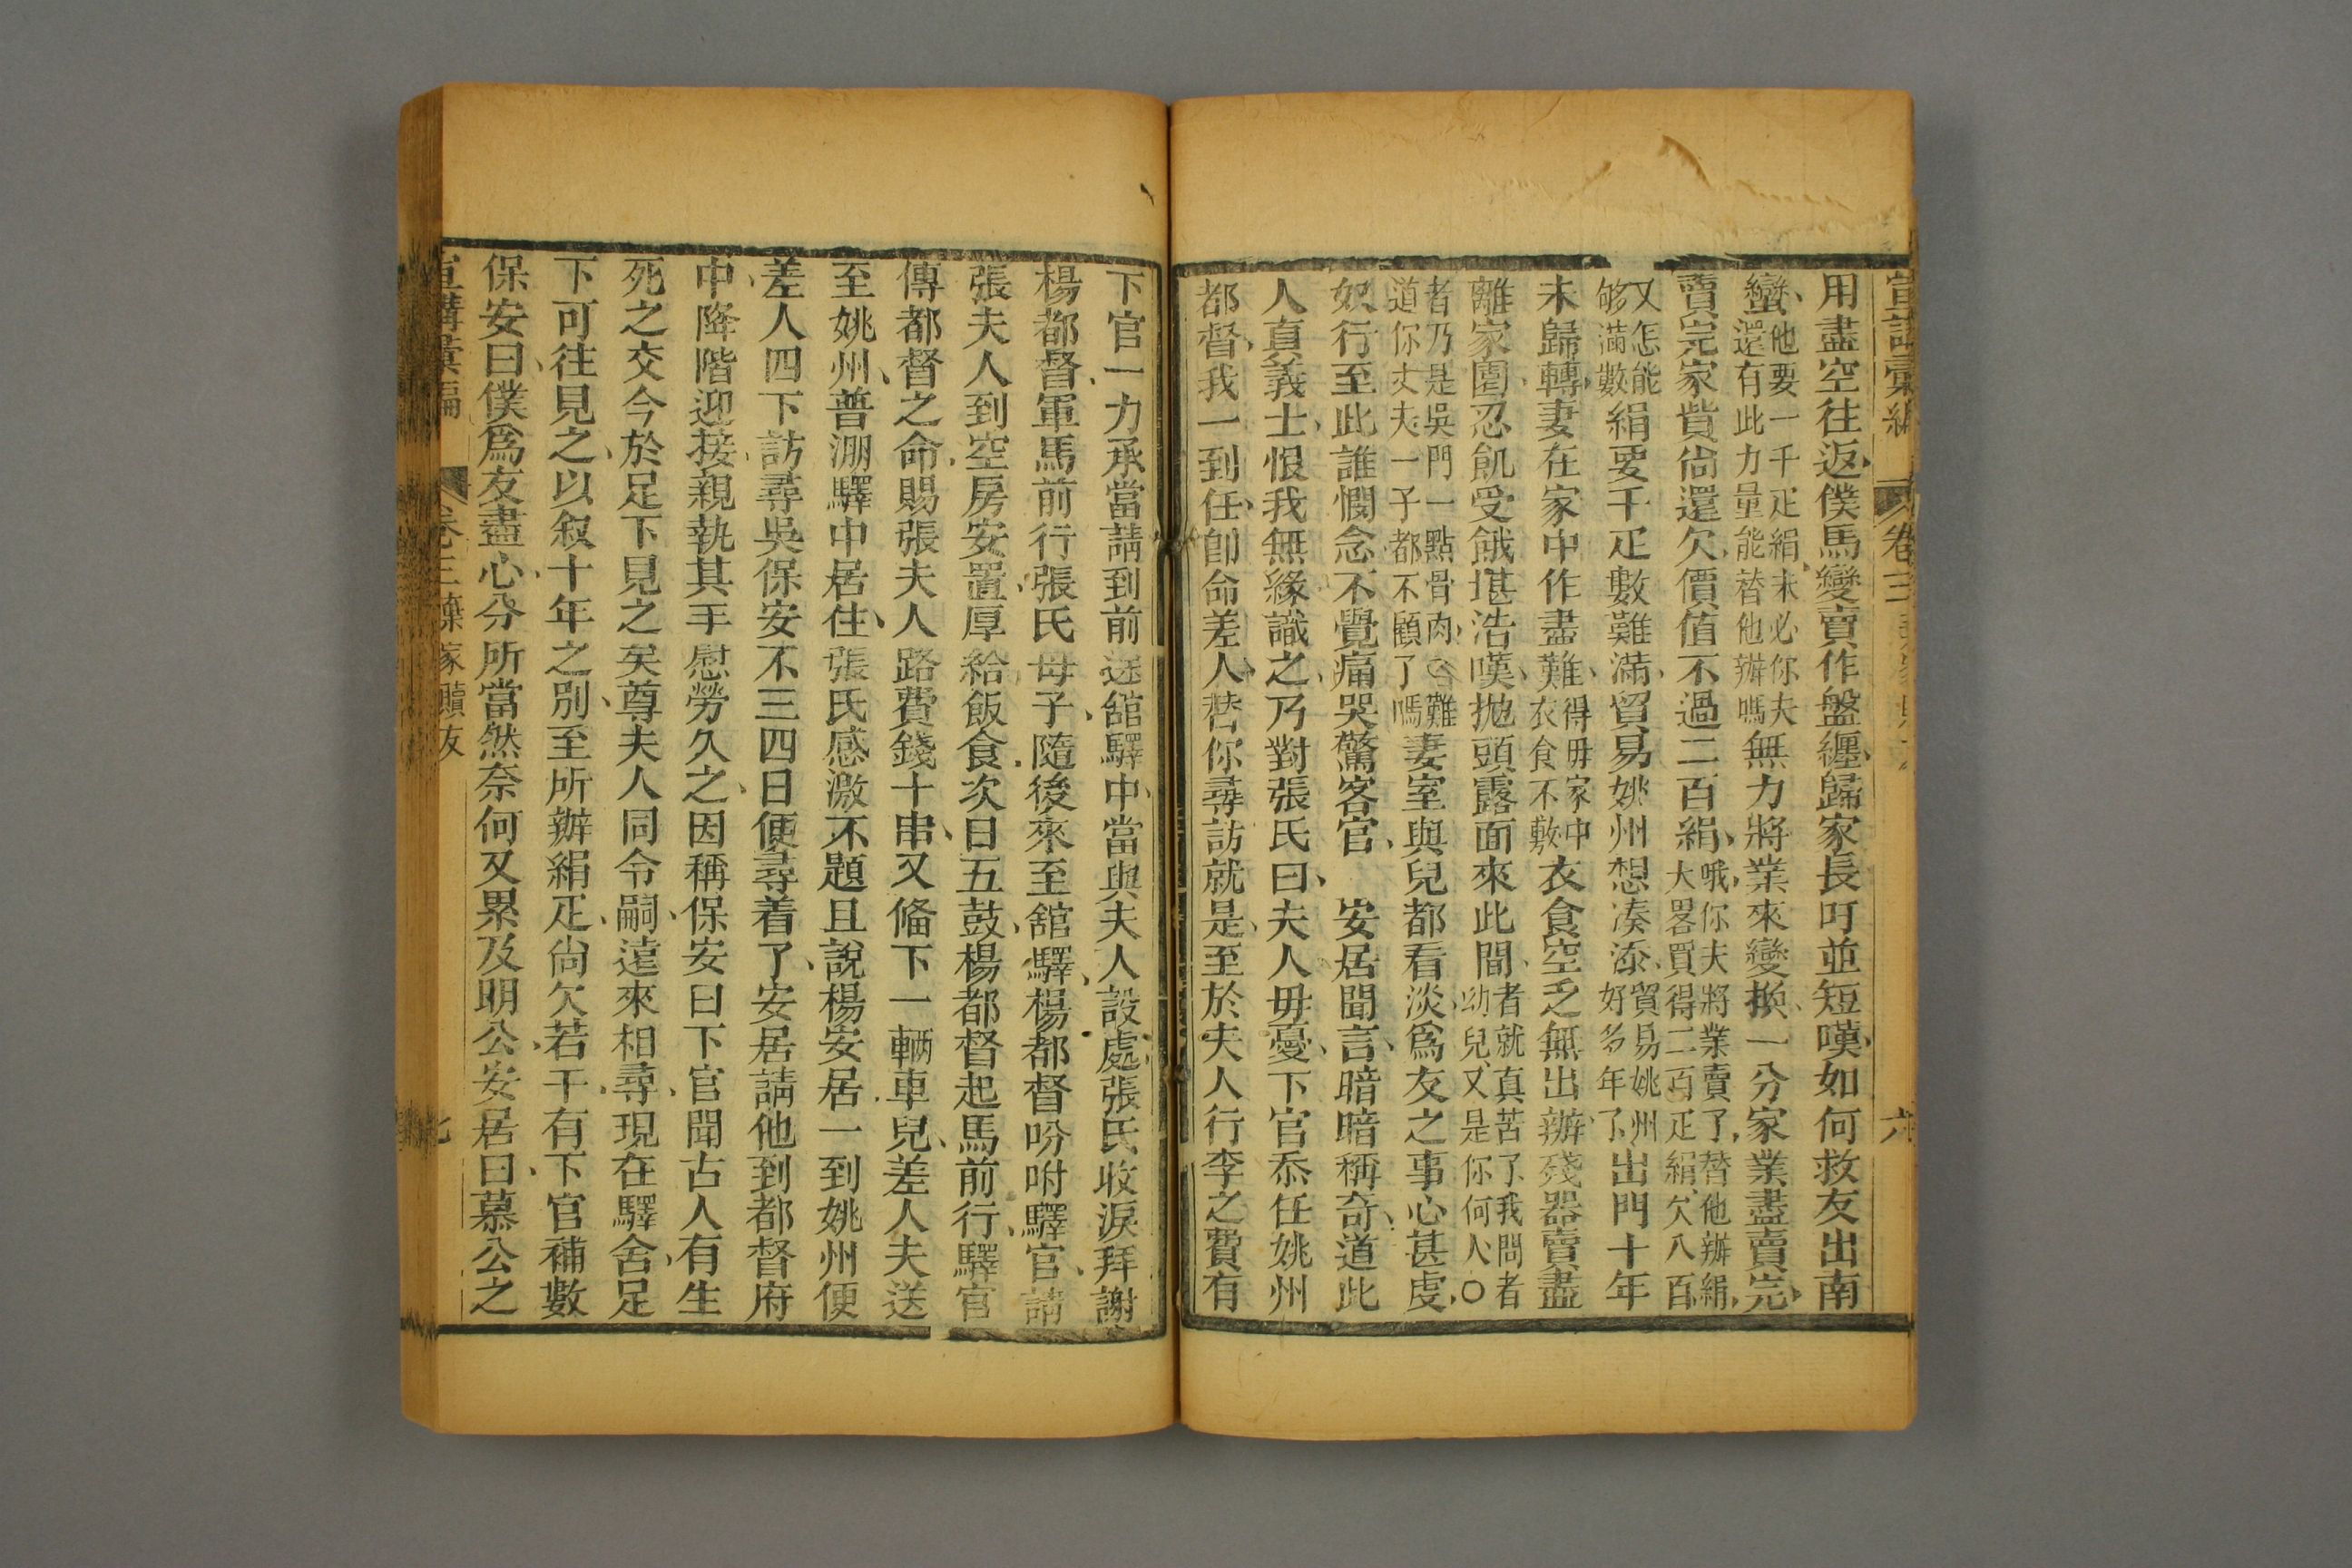 宣講彙編 卷三 六
用盡空往返僕馬變賣作盤纏歸家長吁並短嘆如何救友出南
蠻他要一千疋絹未必你夫還有此力量能替他辦嗎無力將業來變換一分家業盡賣完
賣完家貲尙還欠價值不過二百絹哦你夫將業賣了替他辦絹大畧買得二百疋絹欠八百
又怎能够滿數絹要千疋數難滿貿易姚州想凑添貿易姚州好多年了出門十年
未歸轉妻在家中作盡難得毋家中衣食不敷衣食空乏無出辦殘器賣盡
離家園忍飢受餓堪浩嘆抛頭露面來此間者就真苦了我問者幼兒又是你何人○
者乃是吳門一點骨肉○難道你丈夫一子都不顧了嗎妻室與兒都看淡爲友之事心甚虔
奴行至此誰憫念不覺痛哭驚客官 安居聞言暗暗稱奇道此
人真義士恨我無緣識之乃對張氏曰夫人毋憂下官忝任姚州
都督我一到任卽命差人替你尋訪就是至於夫人行李之費有
下官一力承當請到前途舘驛中當與夫人設處張氏收淚拜謝
楊都督軍馬前行張氏母子隨後來至舘驛楊都督吩咐驛官請
張夫人到空房安置厚給飯食次日五鼓楊都督起馬前行驛官
傳都督之命賜張夫人路費錢十串又俻下一輛車兒差人夫送
至姚州普淜驛中居住張氏感激不題且說楊安居一到姚州便
差人四下訪尋吳保安不三四日便尋着了安居請他到都督府
中降階迎接親執其手慰勞久之因稱保安曰下官聞古人有生
死之交今於足下見之矣尊夫人同令嗣遠來相尋現在驛舍足
下可往見之以叙十年之別至所辦絹疋尙欠若干有下官補數
保安曰僕爲友盡心分所當然奈何又累及明公安居曰慕公之
宣講彙編 卷三棄家贖友 七